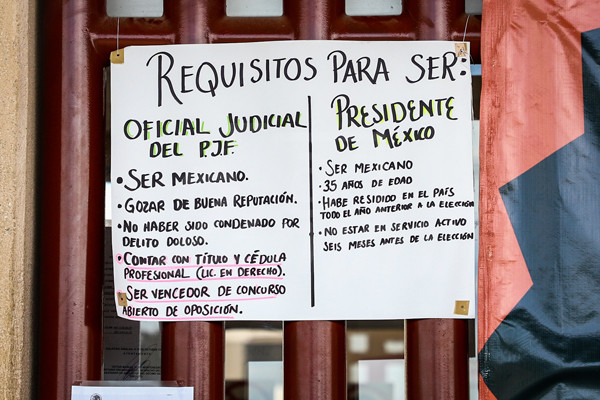 REQUISITOS PARA SER:
OFICIAL JUDICIAL
DEL P.J.F.
• SER MEXICANO.
• GOZAR DE BUENA REPUTACIÓN.
• NO HABER SIDO CONDENADO POR
DELITO DOLOSO.
• CONTAR CON TÍTULO Y CÉDULA
PROFESIONAL (LIC. EN DERECHO).
• SER VENCEDOR DE CONCURSO
ABIERTO DE OPOSICIÓN.
PRESIDENTE
DE MÉXICO
• SER MEXICANO
• 35 AÑOS DE EDAD
• HABE RESIDIDO EN EL PAÍS
TODO EL AÑO ANTERIOR A LA ELECCIÓN
• NO ESTAR EN SERVICIO ACTIVO
SEIS MESES ANTES DE LA ELECCIÓN